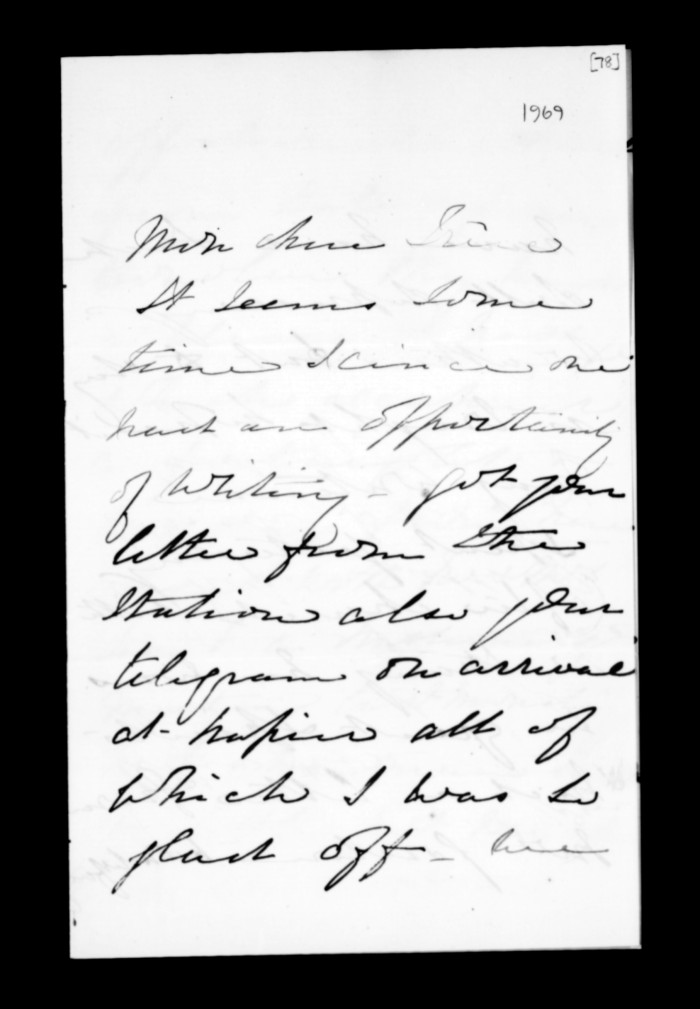 [78]
1969
Mon
It seems some
time scince one
had an opportunity
of writing - got your
letter from the
Station also your
telegram on arrival
at Napier all of
which I was so
glad off -